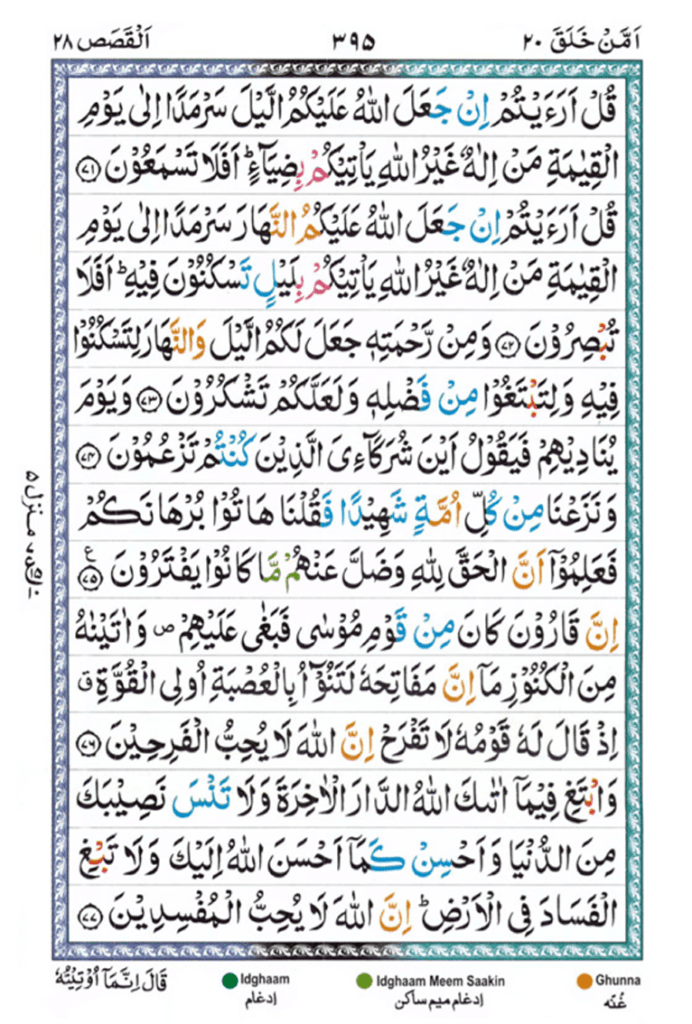 اَمَّنْ خَلَقَ ٢٠
٣٩٥
اَلْقَصَص ٢٨
قُلْ اَرَءَيْتُمْ اِنْ جَعَلَ اللّٰهُ عَلَيْكُمُ الَّيْلَ سَرْمَدًا اِلٰى يَوْمِ
الْقِيٰمَةِ مَنْ اِلٰهٌ غَيْرُ اللّٰهِ يَاْتِيْكُمْ بِضِيَآءٍ ؕ اَفَلَا تَسْمَعُوْنَ ﴿٧١﴾
قُلْ اَرَءَيْتُمْ اِنْ جَعَلَ اللّٰهُ عَلَيْكُمُ النَّهَارَ سَرْمَدًا اِلٰى يَوْمِ
الْقِيٰمَةِ مَنْ اِلٰهٌ غَيْرُ اللّٰهِ يَاْتِيْكُمْ بِلَيْلٍ تَسْكُنُوْنَ فِيْهِ ؕ اَفَلَا
تُبْصِرُوْنَ ﴿٧٢﴾ وَمِنْ رَّحْمَتِهٖ جَعَلَ لَكُمُ الَّيْلَ وَالنَّهَارَ لِتَسْكُنُوْا
فِيْهِ وَلِتَبْتَغُوْا مِنْ فَضْلِهٖ وَلَعَلَّكُمْ تَشْكُرُوْنَ ﴿٧٣﴾ وَيَوْمَ
يُنَادِيْهِمْ فَيَقُوْلُ اَيْنَ شُرَكَآءِىَ الَّذِيْنَ كُنْتُمْ تَزْعُمُوْنَ ﴿٧٤﴾
وَنَزَعْنَا مِنْ كُلِّ اُمَّةٍ شَهِيْدًا فَقُلْنَا هَاتُوْا بُرْهَانَكُمْ
فَعَلِمُوْۤا اَنَّ الْحَقَّ لِلّٰهِ وَضَلَّ عَنْهُمْ مَّا كَانُوْا يَفْتَرُوْنَ ﴿٧٥﴾ ع
اِنَّ قَارُوْنَ كَانَ مِنْ قَوْمِ مُوْسٰى فَبَغٰى عَلَيْهِمْ ص وَاٰتَيْنٰهُ
مِنَ الْكُنُوْزِ مَاۤ اِنَّ مَفَاتِحَهٗ لَتَنُوْٓاُ بِالْعُصْبَةِ اُولِى الْقُوَّةِ ق
اِذْ قَالَ لَهٗ قَوْمُهٗ لَا تَفْرَحْ اِنَّ اللّٰهَ لَا يُحِبُّ الْفَرِحِيْنَ ﴿٧٦﴾
وَابْتَغِ فِيْمَاۤ اٰتٰىكَ اللّٰهُ الدَّارَ الْاٰخِرَةَ وَلَا تَنْسَ نَصِيْبَكَ
مِنَ الدُّنْيَا وَاَحْسِنْ كَمَاۤ اَحْسَنَ اللّٰهُ اِلَيْكَ وَلَا تَبْغِ
الْفَسَادَ فِى الْاَرْضِ ؕ اِنَّ اللّٰهَ لَا يُحِبُّ الْمُفْسِدِيْنَ ﴿٧٧﴾
منزل ۵
قَالَ اِنَّمَاۤ اُوْتِيْتُهٗ
Idghaam
إدغام
Idghaam Meem Saakin
إدغام ميم ساكن
Ghunna
غُنّه